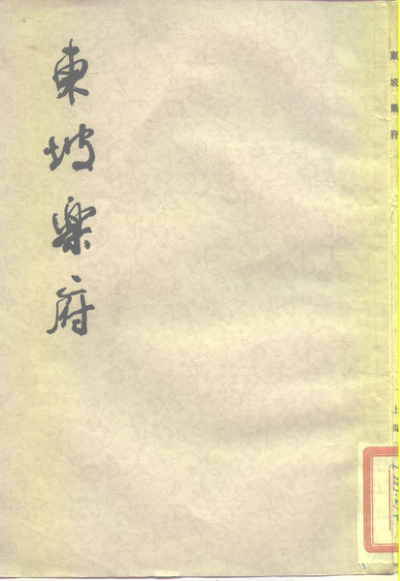 東坡樂府
東坡樂府
上海